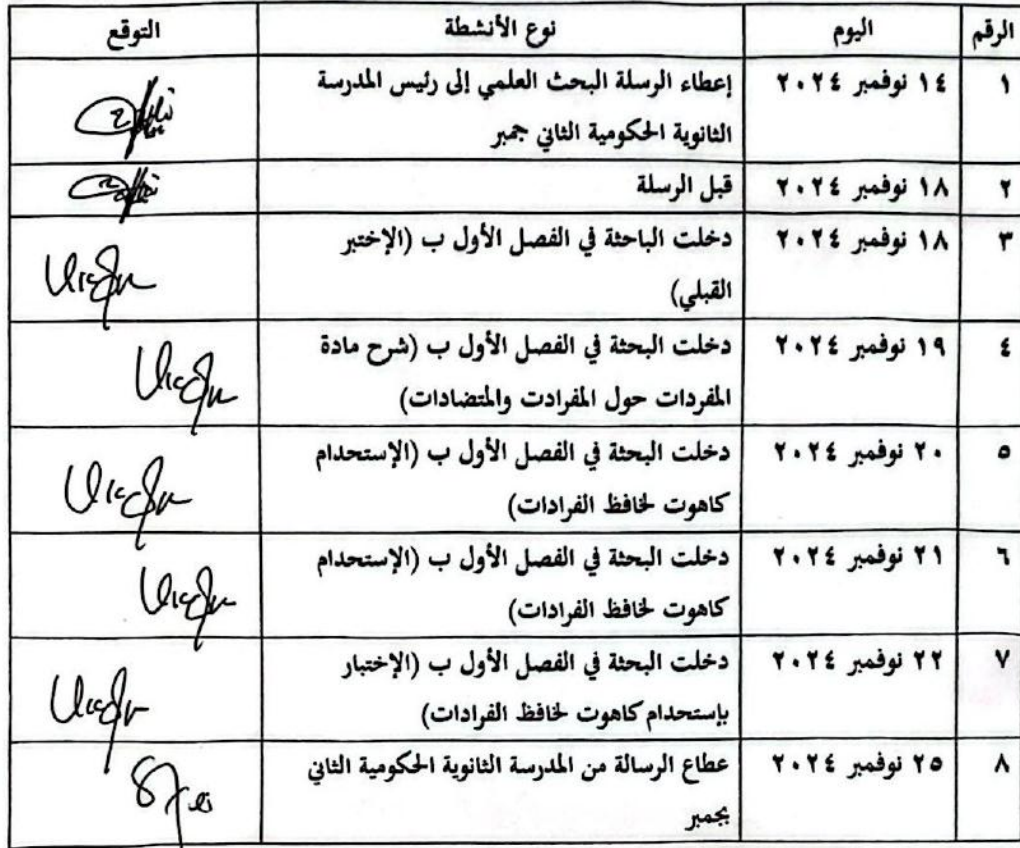 الرقم اليوم نوع الأنشطة التوقع
١ ١٤ نوفمبر ٢٠٢٤ إعطاء الرسلة البحث العلمي إلى رئيس المدرسة
الثانوية الحكومية الثاني جمبر
٢ ١٨ نوفمبر ٢٠٢٤ قبل الرسلة
٣ ١٨ نوفمبر ٢٠٢٤ دخلت الباحثة في الفصل الأول ب (الإختبر
القبلي)
٤ ١٩ نوفمبر ٢٠٢٤ دخلت البحثة في الفصل الأول ب (شرح مادة
المفردات حول المفرادت والمتضادات)
٥ ٢٠ نوفمبر ٢٠٢٤ دخلت البحثة في الفصل الأول ب (الإستحدام
كاهوت لحافظ الفرادات)
٦ ٢١ نوفمبر ٢٠٢٤ دخلت البحثة في الفصل الأول ب (الإستحدام
كاهوت لحافظ الفرادات)
٧ ٢٢ نوفمبر ٢٠٢٤ دخلت البحثة في الفصل الأول ب (الإختبار
بإستحدام كاهوت لحافظ الفرادات)
٨ ٢٥ نوفمبر ٢٠٢٤ عطاع الرسالة من المدرسة الثانوية الحكومية الثاني
بجمبر